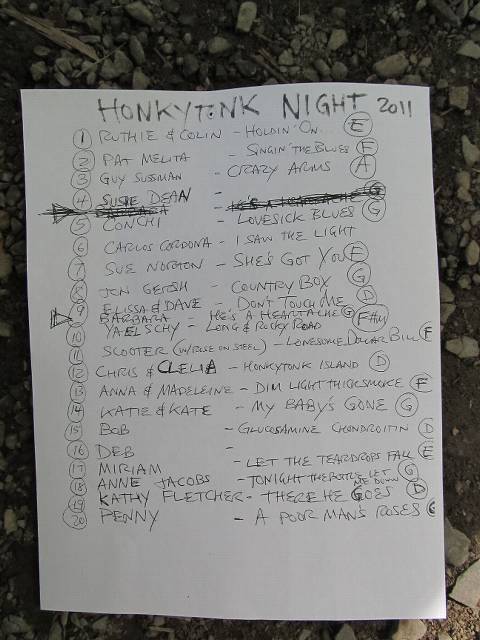 HONKYTONK NIGHT 2011
1 RUTHIE & COLIN - HOLDIN' ON E
2 PAT MELITA - SINGIN' THE BLUES F
3 GUY SUSSMAN - CRAZY ARMS A
4 SUSIE DEAN - HE'S A HEARTACHE G
5 CONCHI - LOVESICK BLUES G
6 CARLOS CORDONA - I SAW THE LIGHT
7 SUE NORTON - SHE'S GOT YOU F
8 JEN GERSH - COUNTRY BOY G
9 ELISSA & DAVE - DON'T TOUCH ME D
BARBARA HE'S A HEARTACHE G
10 YAEL SCHY - LONG & ROCKY ROAD F#m
11 SCOOTER (w/ROSE ON STEEL) - LONESOME DOLLAR BILL F
12 CHRIS & CLELIA - HONKYTONK ISLAND D
13 ANNA & MADELEINE - DIM LIGHT THICK SMOKE E
14 KATIE & KATE - MY BABY'S GONE G
15 BOB - GLUCOSAMINE CHONDROITIN D
16 DEB -
17 MIRIAM - LET THE TEARDROPS FALL E
18 ANNE JACOBS - TONIGHT THE BOTTLE LET ME DOWN G
19 KATHY FLETCHER - THERE HE GOES D
20 PENNY - A POOR MAN'S ROSES G